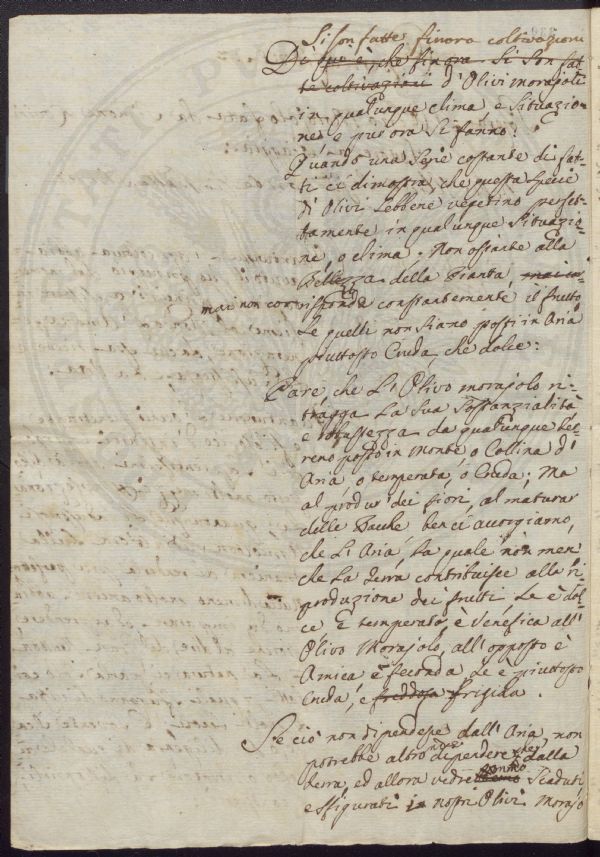 Si son fatte finora coltivazioni
Di qui è, che finora si son fat-
te coltivazioni d'Olivi morajoli
in qualunque clima e situazio-
ne, e pur ora si fanno.
Quando una serie costante di fat-
ti ci dimostra che questa specie
di Olivi sebbene vegetino perfet-
tamente in qualunque situazio-
ne, o clima; Non ostante alla
Bellezza della Pianta, mai in
mai non corrisponde constantemente il frutto
se quelli non siano posti in Aria
piuttosto Cruda, che dolce:
Pare, che L'Olivo morajolo ri-
tragga La Sua Sostanzialità
e robustezza da qualunque ter-
reno posto in Monte, o Collina d'
Aria, o temperata, o Cruda; Ma
al produr dei fiori, al maturar
delle Bacche ben ci accorgiamo,
che L'Aria, la quale non men
che La terra contribuisce alla ri-
produzione dei frutti se è dol-
ce e temperata è Venefica all'
Olivo Morajolo, all'opposto è
Amica e feconda se è piuttosto
Cruda, e freddosa frigida.
Se ciò non dipendesse dall'Aria, non
potrebbe altronde dipendere che dalla
terra, ed allora vedre
Scaduti
e sfigurati i nostri Olivi Morajo